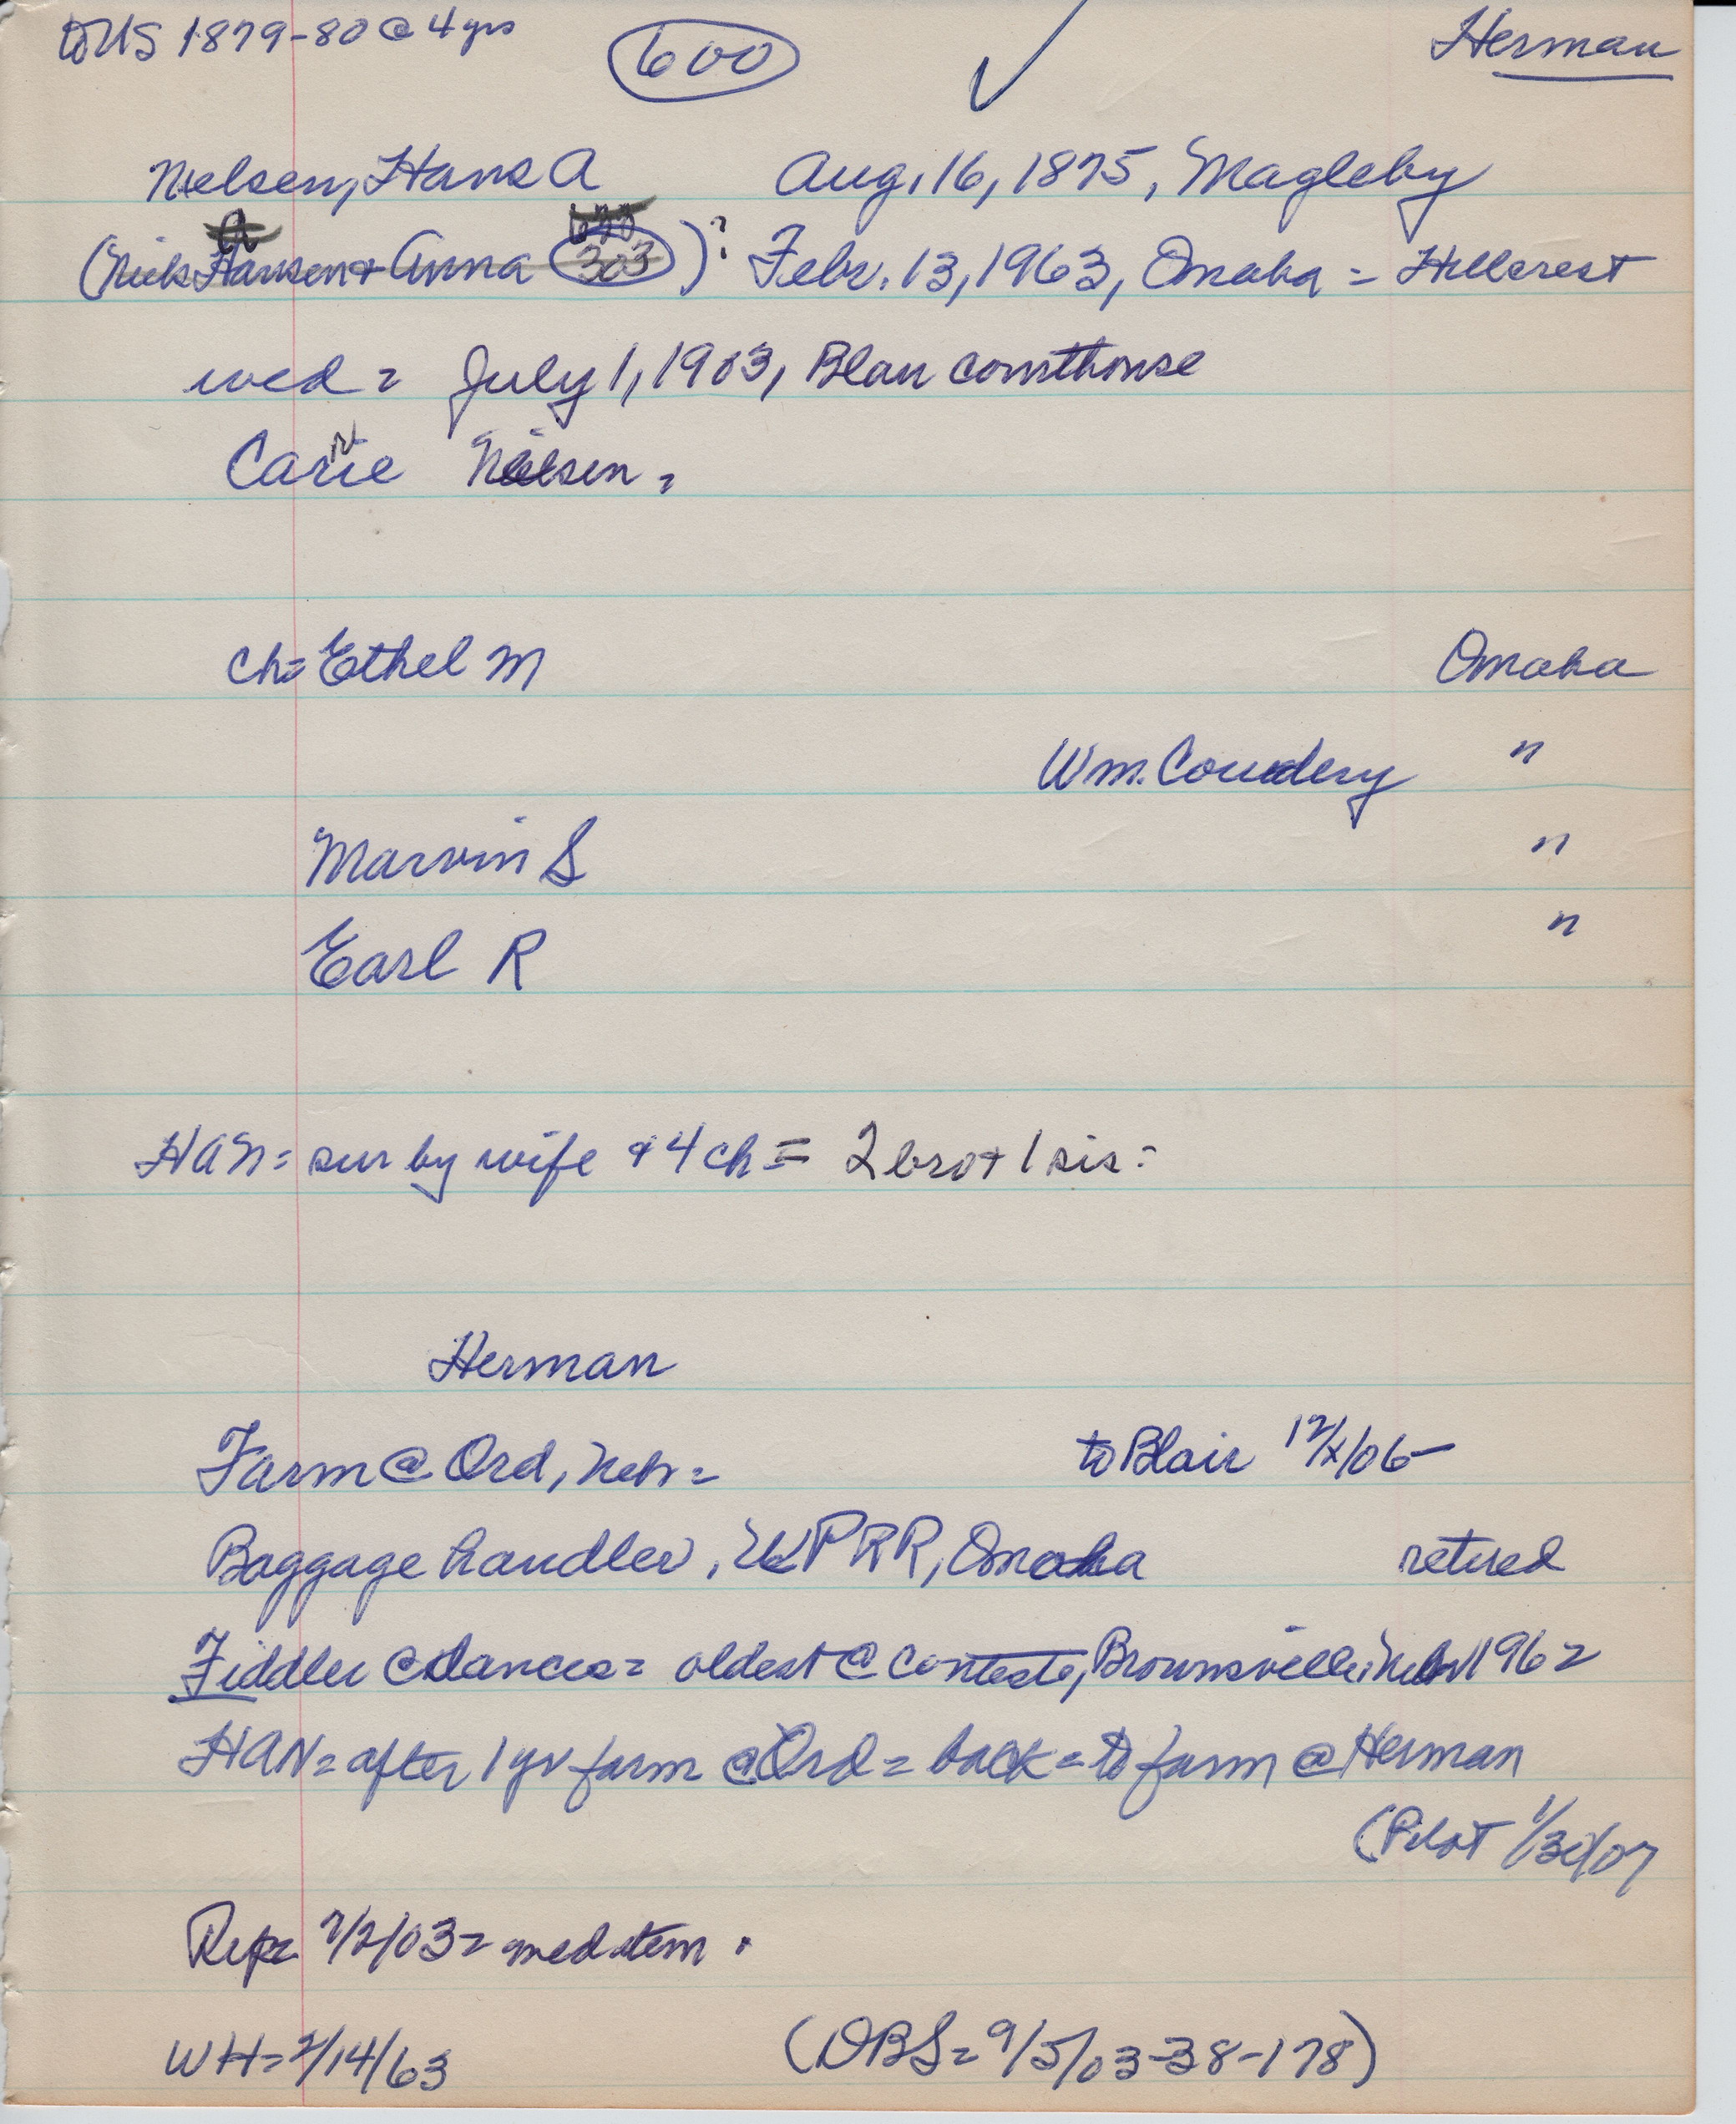 to US 1879-80 @ 4 yrs 600 ✓ Herman
Nielsen, Hans A Aug. 16, 1875, Magleby
(Niels Hansen + Anna 303)? Febr. 13, 1963, Omaha = Hillcrest
wed = July 1, 1903, Blair courthouse
Carie Nielsen =
ch= Ethel M Omaha
Wm. Cowdery "
Marvin S "
Earl R "
HAN = sur by wife + 4 ch = 2 bro + 1 sis =
Herman
Farm @ Ord, Nebr = to Blair 12/x/06 -
Baggage handler, UPRR, Omaha retired
Fiddler @ dances = oldest @ contests, Brownsville, Nebr 1962
HAN = after 1 yr farm @ Ord = back = to farm @ Herman
(Pilot 1/30/07
7/2/03 =
WH = 2/14/63 (DBS = 9/5/03-38-178)